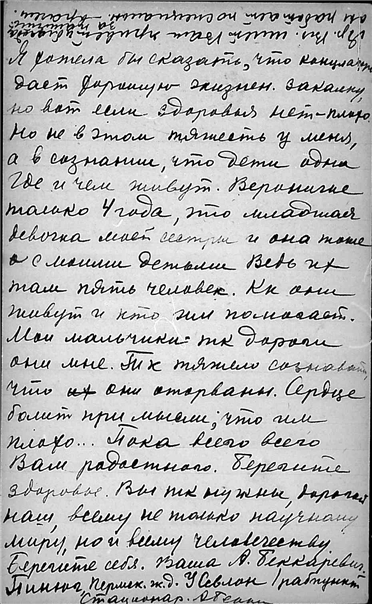 Я хотела бы сказать, что концлагерь
дает хорошую жизнен. закалку,
но вот если здоровья нет - плохо.
Но не в этом тяжесть у меня,
а в сознании, что дети одни
Где и чем живут. Веронычке
только 4 года, это младшая
девочка моей сестры и она тоже
с моими детьми Ведь их
там пять человек. Кк они
живут и кто им помогает.
Мои мальчики - тк дороги
они мне. Тк тяжело сознавать,
что они оторваны. Сердце
болит при мысли, что им
плохо... Пока всего всего
Вам радостного. Берегите
здоровье. Вы тк нужны, дорогой
наш, всему не только научному
миру, но и всему человечеству
Берегите себя. Ваша А. Беккаревич.
Пинюг, Пермск. жд. УСевлон
Стационар.